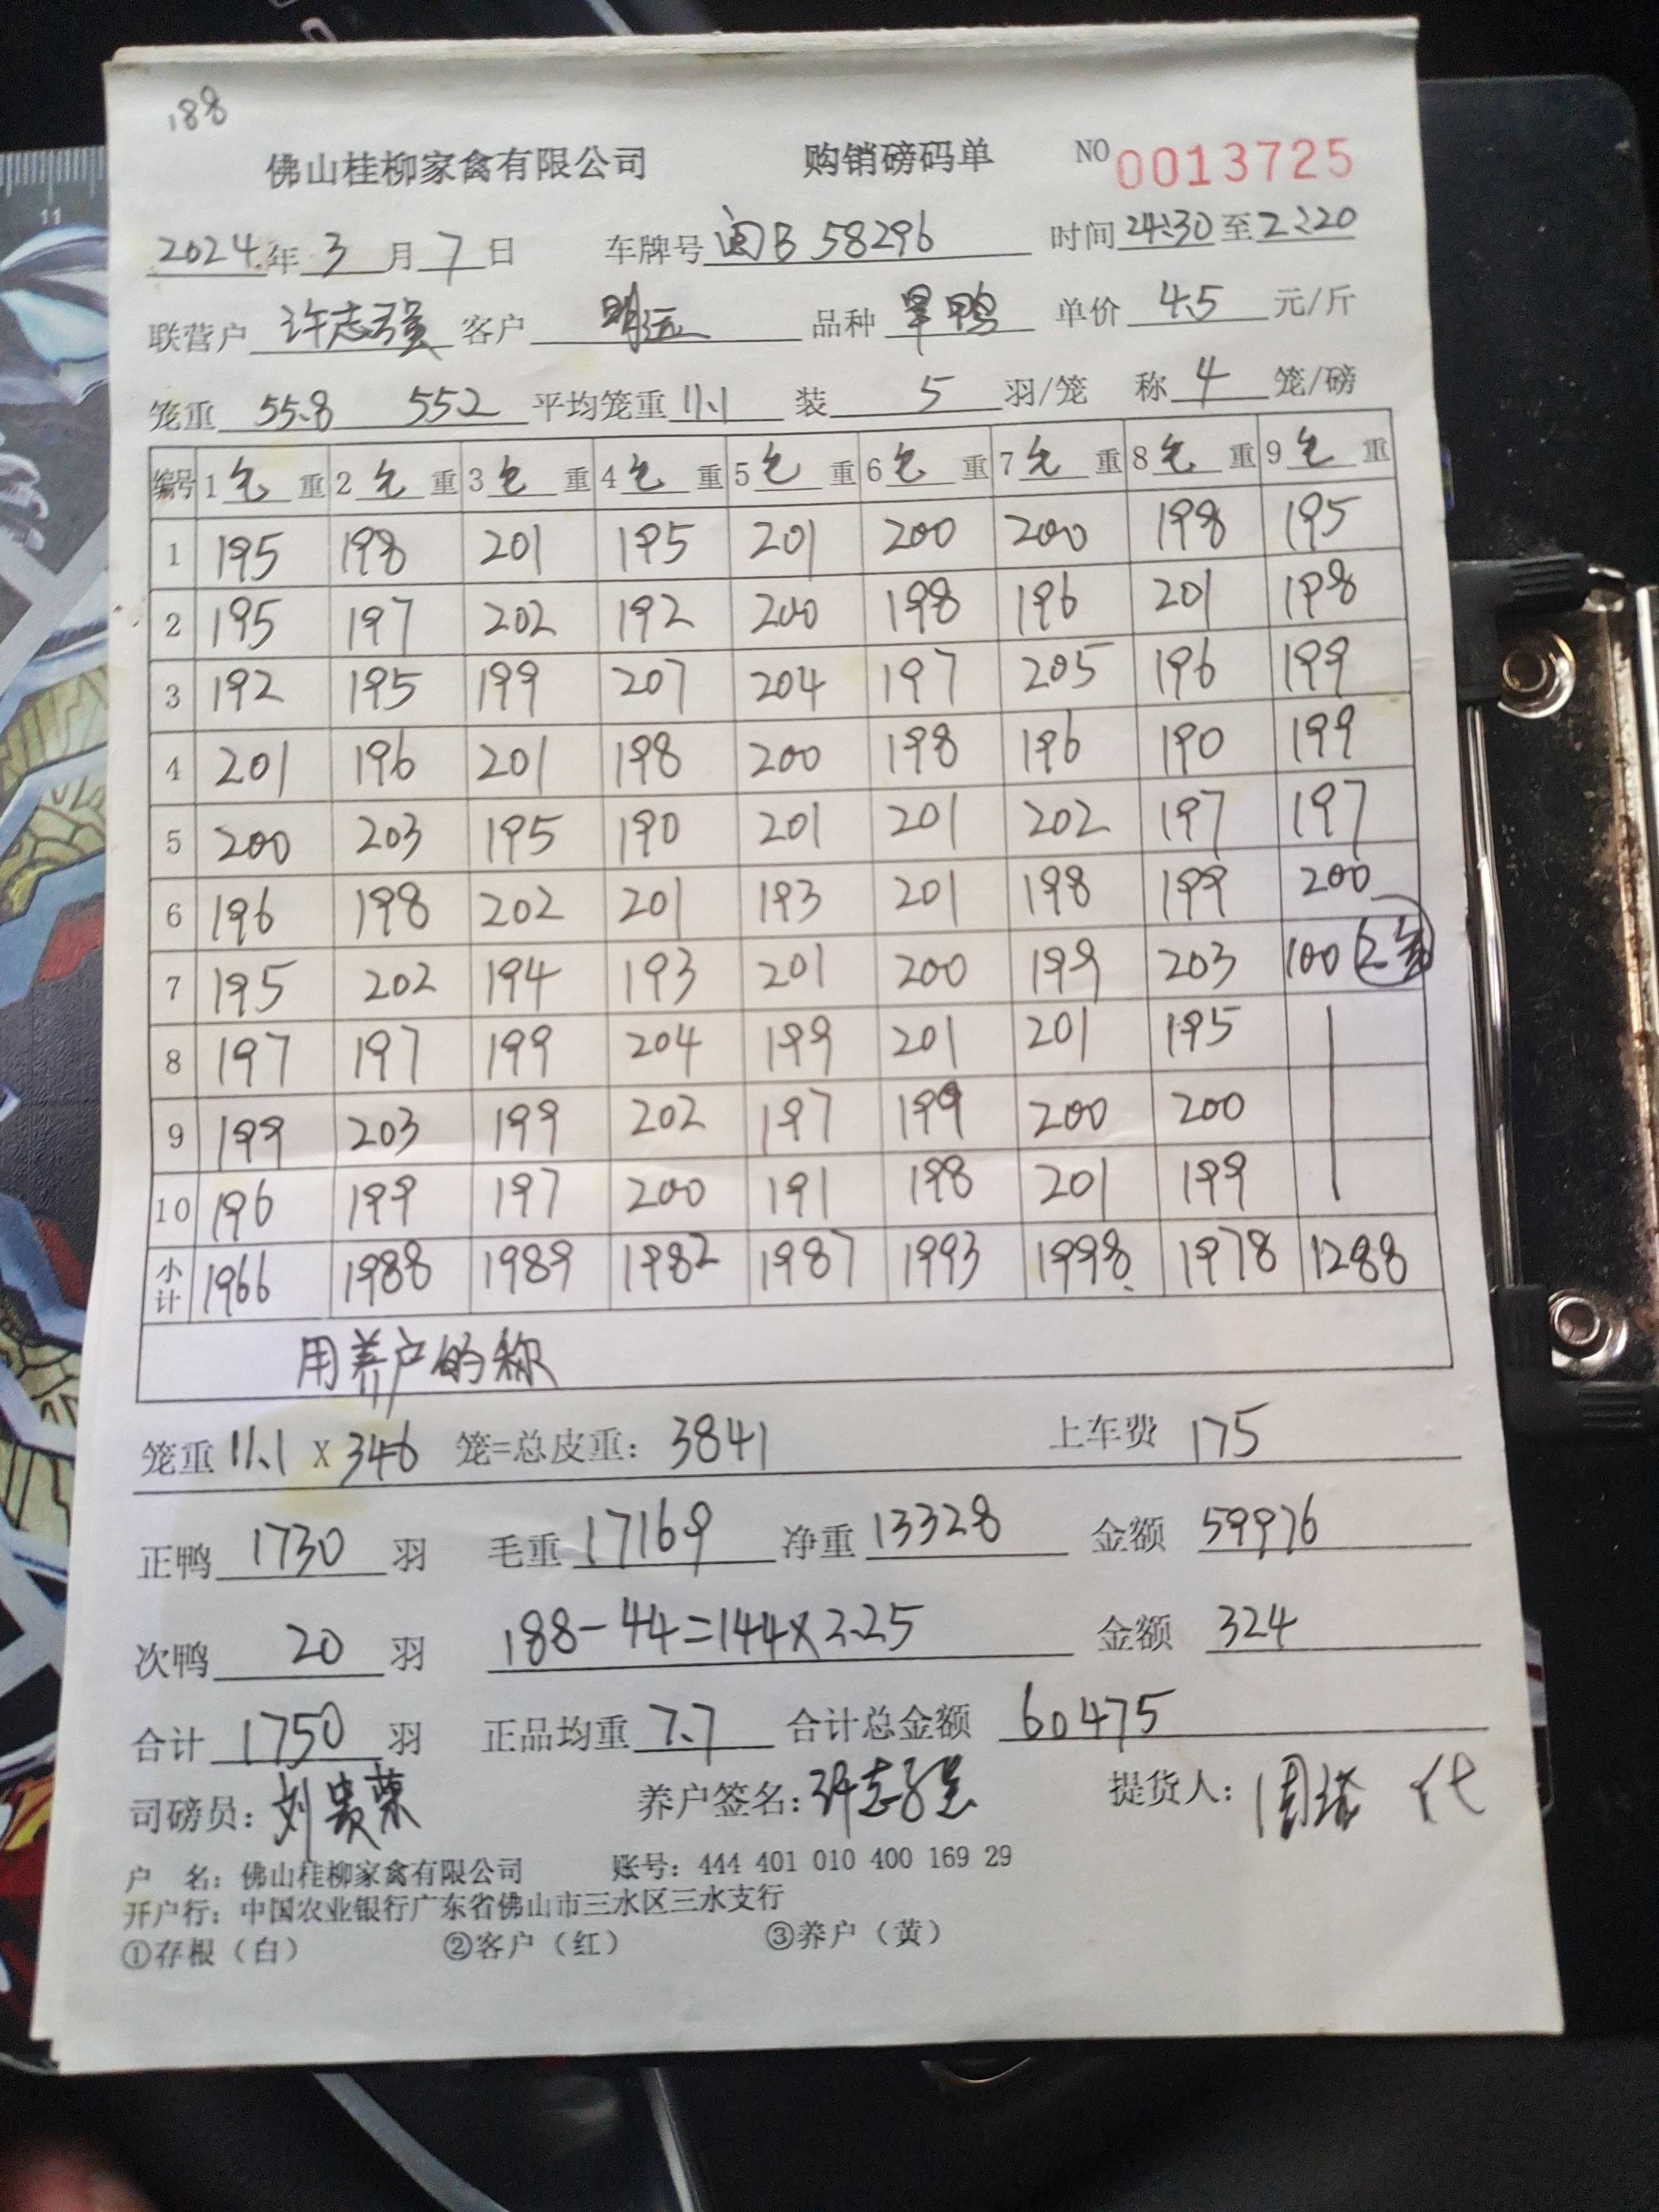 188
佛山桂柳家禽有限公司 购销磅码单 NO 0013725
2024年 3 月 7 日 车牌号 闽B 58296 时间 24:30 至 2:20
联营户 许志强 客户 明远 品种 旱鸭 单价 4.5 元/斤
笼重 55.8 55.2 平均笼重 11.1 装 5 羽/笼 称 4 笼/磅
编号 1 毛 重 2 毛 重 3 毛 重 4 毛 重 5 毛 重 6 毛 重 7 毛 重 8 毛 重 9 毛 重
1 195 198 201 195 201 200 200 198 195
2 195 197 202 192 200 198 196 201 198
3 192 195 199 207 204 197 205 196 199
4 201 196 201 198 200 198 196 190 199
5 200 203 195 190 201 201 202 197 197
6 196 198 202 201 193 201 198 199 200
7 195 202 194 193 201 200 199 203 100
8 197 197 199 204 199 201 201 195
9 199 203 199 202 197 199 200 200
10 196 199 197 200 191 198 201 199
小计 1966 1988 1989 1982 1987 1993 1998 1978 1288
用养户的称
笼重 11.1 X 346 笼=总皮重: 3841 上车费 175
正鸭 1730 羽 毛重 17169 净重 13328 金额 59976
次鸭 20 羽 188-44=144X2.25 金额 324
合计 1750 羽 正品均重 7.7 合计总金额 60475
司磅员: 刘贵荣 养户签名: 许志强 提货人: 代
户 名: 佛山桂柳家禽有限公司 账号: 444 401 010 400 169 29
开户行: 中国农业银行广东省佛山市三水区三水支行
①存根（白） ②客户（红） ③养户（黄）
11